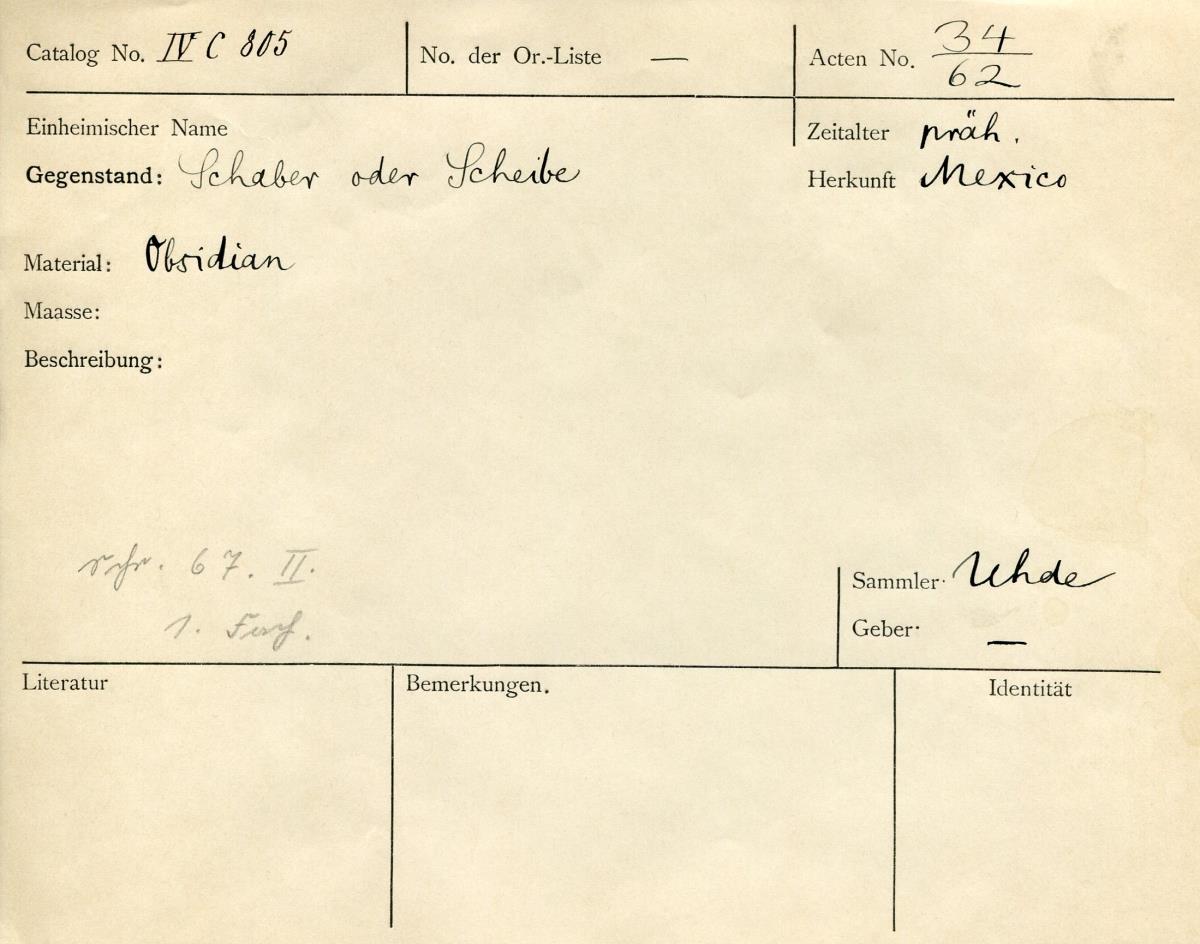 Catalog No. IV C 805
No. der Or.-Liste —
Acten No. 34/62
Einheimischer Name
Zeitalter präh.
Gegenstand: Schaber oder Scheibe
Herkunft Mexico
Material: Obsidian
Maasse:
Beschreibung:
Schr. 67. II.
1. Fach.
Sammler Uhde
Geber —
Literatur
Bemerkungen.
Identität